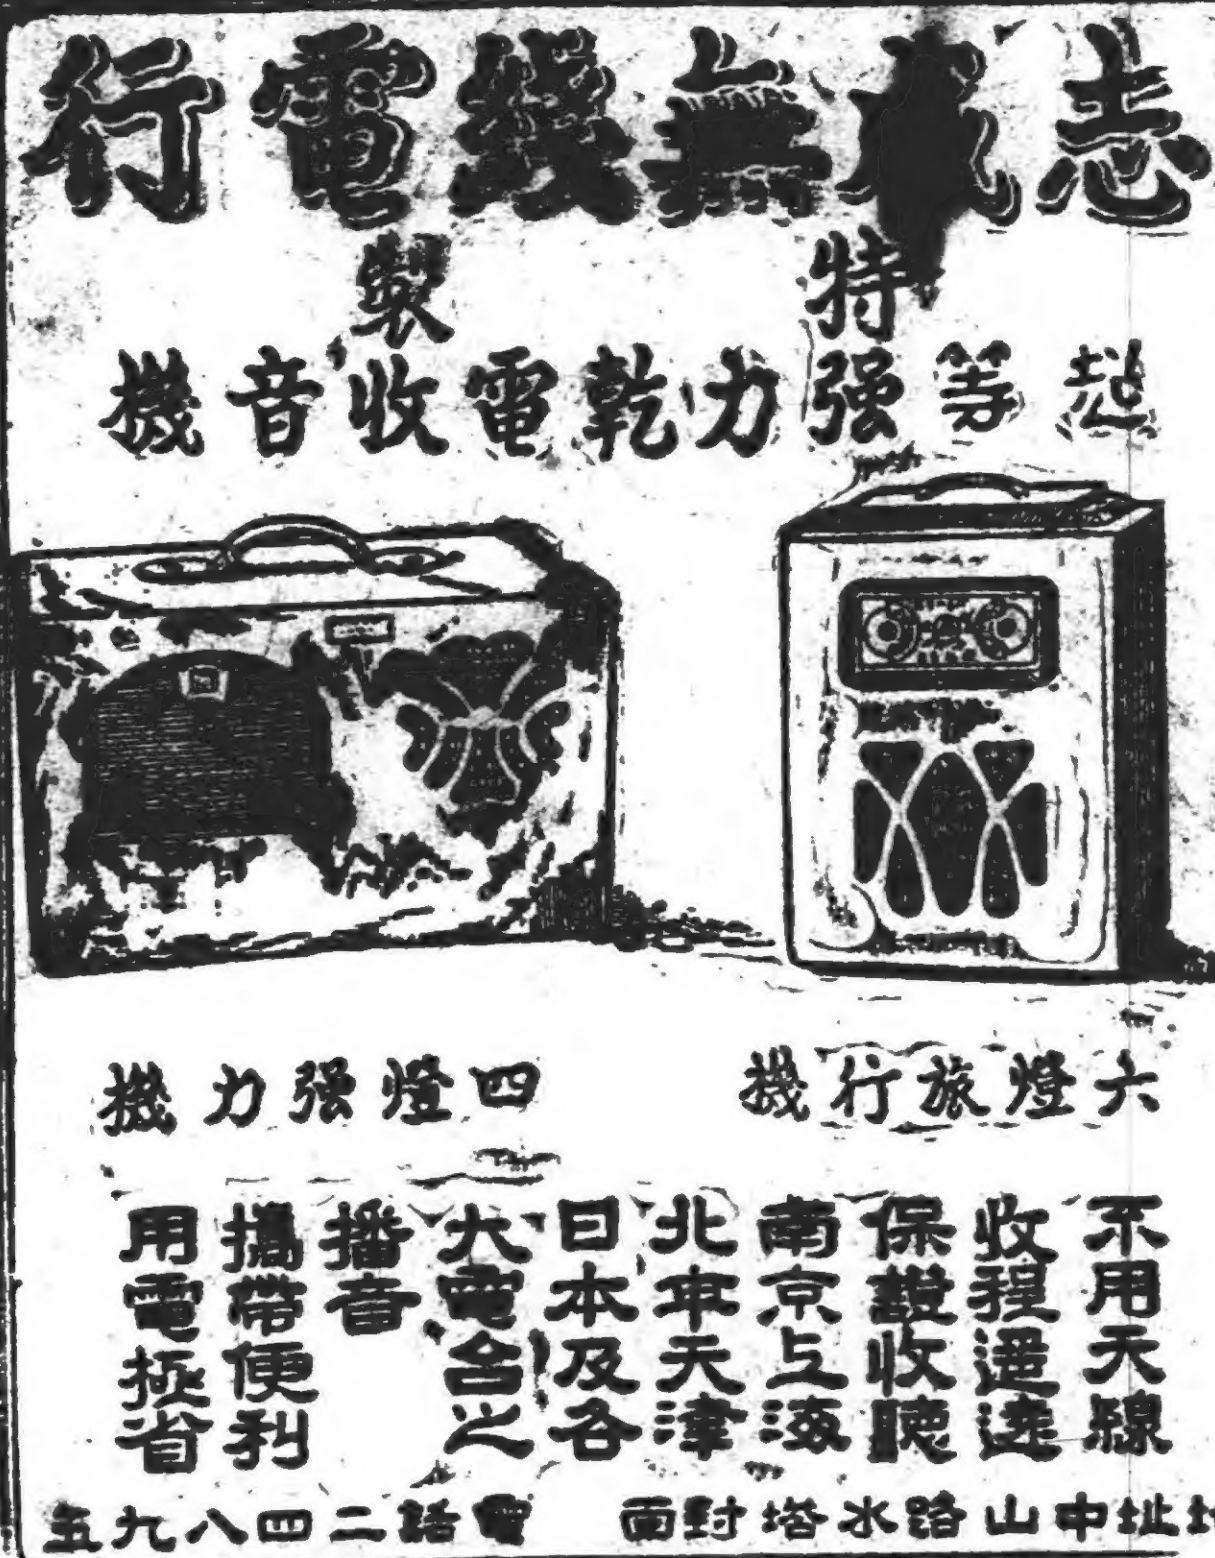 志成無綫電行
特製
超等强力乾電收音機
六燈旅行機
四燈强力機
不用天線
收程遥遠
保證收聽
南京上海
北平天津
日本及各
大電台之
播音
攜帶便利
用電極省
地址中山路水塔對面
電話二四八九五